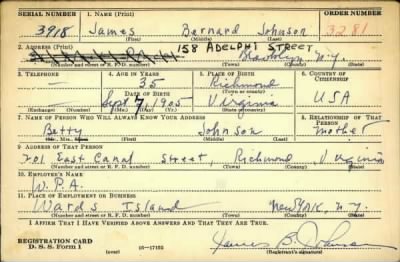 SERIAL NUMBER 1. NAME (Print) ORDER NUMBER
3918 James Barnard Johnson 3281
(First) (Middle) (Last)
2. ADDRESS (Print) 158 ADELPHI STREET,
Brooklyn, N.Y.
(Number and street or R. F. D. number) (Town) (County) (State)
3. TELEPHONE 4. AGE IN YEARS 5. PLACE OF BIRTH 6. COUNTRY OF CITIZENSHIP
— 35 Richmond
DATE OF BIRTH (Town or county)
— Sept 7, 1905 Virginia USA
(Exchange) (Number) (Mo.) (Day) (Yr.) (State or country)
7. NAME OF PERSON WHO WILL ALWAYS KNOW YOUR ADDRESS 8. RELATIONSHIP OF THAT PERSON
Betty Johnson Mother
(Mr., Mrs., Miss) (First) (Middle) (Last)
9. ADDRESS OF THAT PERSON
201 East Canal Street, Richmond, Virginia
(Number and street or R. F. D. number) (Town) (County) (State)
10. EMPLOYER'S NAME
W.P.A.
11. PLACE OF EMPLOYMENT OR BUSINESS
Wards Island New York, N.Y.
(Number and street or R. F. D. number) (Town) (County) (State)
I AFFIRM THAT I HAVE VERIFIED ABOVE ANSWERS AND THAT THEY ARE TRUE.
REGISTRATION CARD
D. S. S. Form 1 (over) 16—17105 James B. Johnson
(Registrant's signature)